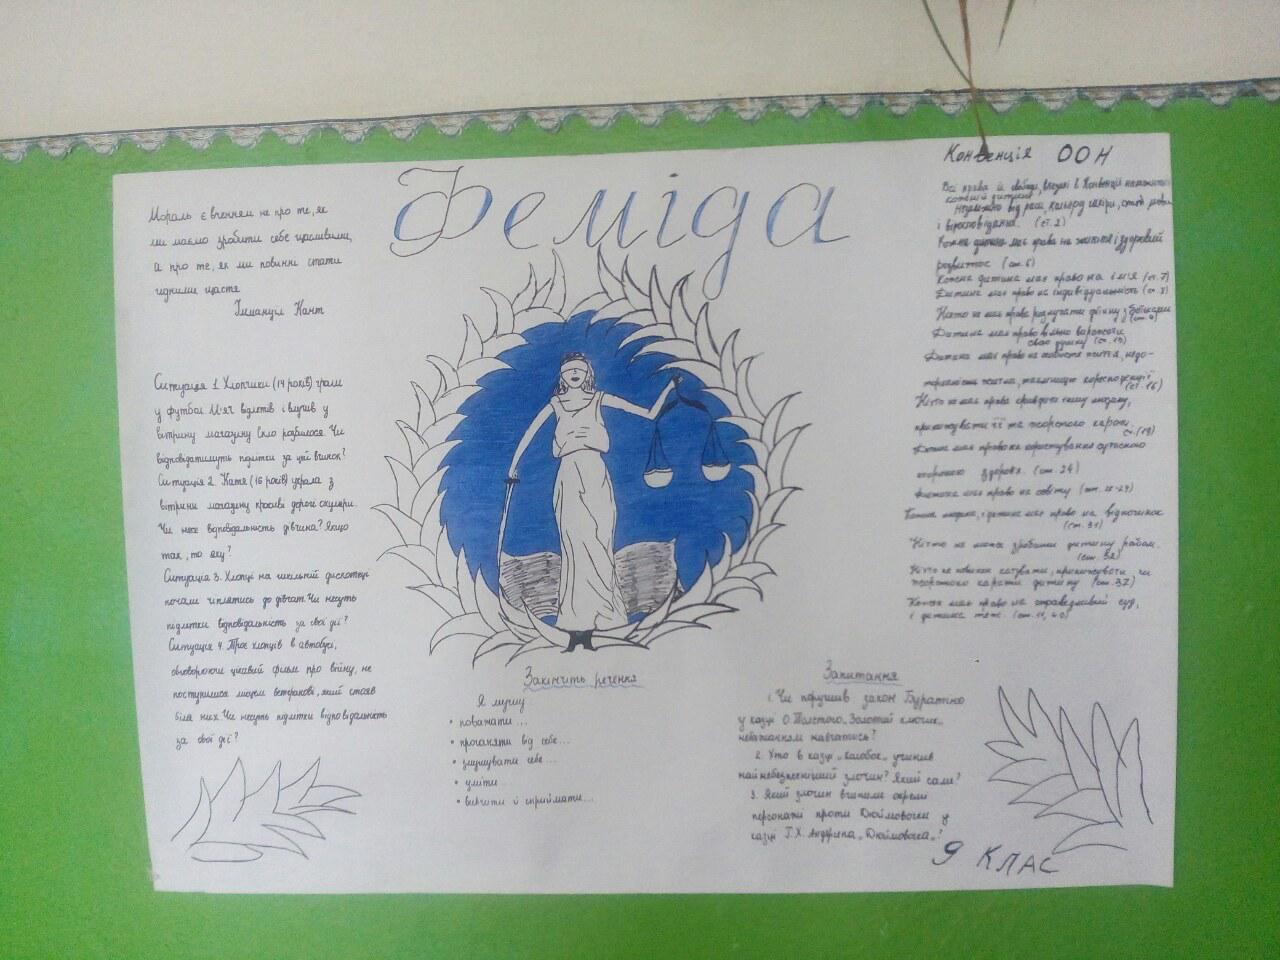 Феміда
Мораль є вченням не про те, як
ми маємо зробити себе щасливими,
а про те, як ми повинні стати
гідними щастя
Іммануїл Кант
Ситуація 1. Хлопчики (14 років) грали
у футбол. М'яч відлетів і влучив у
вітрину магазину. Скло розбилося. Чи
відповідатимуть підлітки за цей вчинок?
Ситуація 2. Катя (16 років) украла з
вітрини магазину красиві дорогі окуляри.
Чи несе відповідальність дівчина? Якщо
так, то яку?
Ситуація 3. Хлопці на шкільній дискотеці
почали чіплятись до дівчат. Чи несуть
підлітки відповідальність за свої дії?
Ситуація 4. Троє хлопців в автобусі,
обговорюючи цікавий фільм про війну, не
поступилися місцем ветеранові, який стояв
біля них. Чи несуть підлітки відповідальність
за свої дії?
Закінчіть речення
Я мушу
• поважати...
• проганяти від себе...
• змушувати себе...
• уміти...
• вивчити й сприймати...
Запитання
1. Чи порушив закон Буратіно
у казці О.Толстого „Золотий ключик„
небажанням навчатись?
2. Хто в казці „Колобок„ учинив
найнебезпечніший злочин? Який саме?
3. Який злочин вчинили окремі
персонажі проти Дюймовочки у
казці Г.Х. Андерсена „Дюймовочка„?
Конвенція ООН
Всі права й свободи, в Конвенції
кожній дитині
незалежно від раси, кольору шкіри, статі, мови
і віросповідання. (ст. 2)
Кожна дитина має право на життя і здоровий
розвиток (ст. 6)
Кожна дитина має право на ім'я (ст. 7)
Дитина має право на індивідуальність (ст. 8)
Ніхто не має права розлучати дитину з батьками
Дитина має право вільно
свою думку (ст. 13)
Дитина має право на особисте життя, недо-
таємницю кореспонденції
(ст. 16)
Ніхто не має права
(ст. 19)
Дитина має право на користування сучасною
охороною здоров'я. (ст. 24)
Дитина має право на освіту (ст. 28-29)
Кожна людина, і дитина має право на відпочинок
(ст. 31)
Ніхто не може зробити дитину рабом.
(ст. 32)
Ніхто не повинен катувати, чи
жорстоко карати дитину (ст. 37)
Кожен має право на справедливий суд,
і дитина теж. 40)
9 КЛАС